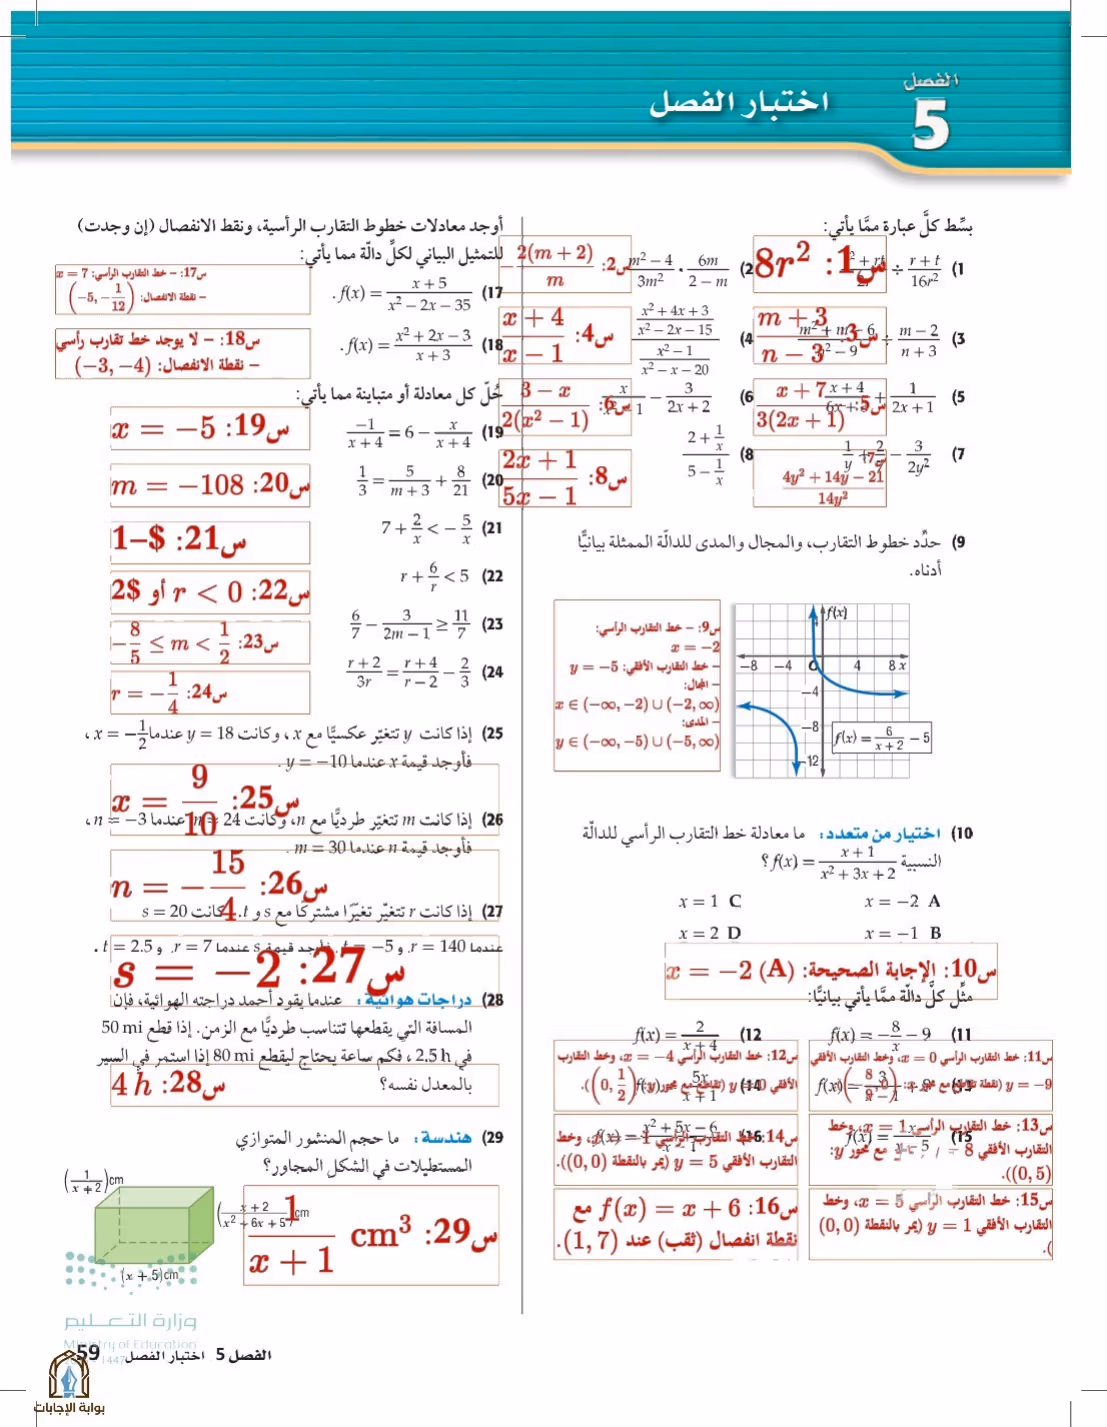 الفصل
5
اختبار الفصل
بسِّط كلَّ عبارة ممَّا يأتي:
(1 ÷ (r + t)/(16r²)
س1: 8r²
(2 (m² − 4)/(3m²) · (6m)/(2 − m)
س2: −2(m + 2)/m
(3 (m² + m − 6)/(n² − 9) ÷ (m − 2)/(n + 3)
س3: (m + 3)/(n − 3)
(4 ((x² + 4x + 3)/(x² − 2x − 15))/((x² − 1)/(x² − x − 20))
س4: (x + 4)/(x − 1)
(5 (x + 4)/(6x + 3) + 1/(2x + 1)
س5: (x + 7)/(3(2x + 1))
(6 − 3/(2x + 2)
س6: (3 − x)/(2(x² − 1))
(7 1/y + 2/7 − 3/(2y²)
س7: (4y² + 14y − 21)/(14y²)
(8 (2 + 1/x)/(5 − 1/x)
س8: (2x + 1)/(5x − 1)
(9 حدِّد خطوط التقارب، والمجال والمدى للدالّة الممثلة بيانيًّا
أدناه.
س9: – خط التقارب الرأسي:
x = −2
– خط التقارب الأفقي: y = −5
– المجال:
x ∈ (−∞, −2) ∪ (−2, ∞)
– المدى:
y ∈ (−∞, −5) ∪ (−5, ∞)
f(x)
−8 −4 O 4 8 x
−4
−8
−12
f(x) = 6/(x + 2) − 5
(10 اختيار من متعدد: ما معادلة خط التقارب الرأسي للدالّة
النسبية f(x) = (x + 1)/(x² + 3x + 2) ؟
x = −2 A
x = 1 C
x = −1 B
x = 2 D
س10: الإجابة الصحيحة: x = −2 (A)
مثِّل كلَّ دالّة ممَّا يأتي بيانيًّا:
(11 f(x) = −8/x − 9
(12 f(x) = 2/(x + 4)
س11: خط التقارب الرأسي x = 0، وخط التقارب الأفقي
y = −9
س12: خط التقارب الرأسي x = −4، وخط التقارب
الأفقي y = 0 (تقاطع مع محور y: (0, 1/2)).
(13
(14 5x/(x + 1)
س13: خط التقارب الرأسي x = 1، وخط
التقارب الأفقي 8 مع محور y:
(0, 5)).
س14: خط التقارب الرأسي −1، وخط
التقارب الأفقي y = 5 (يمر بالنقطة (0, 0)).
(15 f(x) = x/(x − 5)
(16 f(x) = (x² + 5x − 6)/(x − 1)
س15: خط التقارب الرأسي x = 5، وخط
التقارب الأفقي y = 1 (يمر بالنقطة (0, 0)
).
س16: f(x) = x + 6 مع
نقطة انفصال (ثقب) عند (1, 7).
أوجد معادلات خطوط التقارب الرأسية، ونقط الانفصال (إن وجدت)
للتمثيل البياني لكلِّ دالة مما يأتي:
(17 f(x) = (x + 5)/(x² − 2x − 35) .
س17: – خط التقارب الرأسي: x = 7
– نقطة الانفصال: (−5, −1/12)
(18 f(x) = (x² + 2x − 3)/(x + 3) .
س18: – لا يوجد خط تقارب رأسي
– نقطة الانفصال: (−3, −4)
حُلّ كل معادلة أو متباينة مما يأتي:
(19 −1/(x + 4) = 6 − x/(x + 4)
س19: x = −5
(20 1/3 = 5/(m + 3) + 8/21
س20: m = −108
(21 7 + 2/x < −5/x
س21: $–1
(22 r + 6/r < 5
س22: r < 0 أو $2
(23 6/7 − 3/(2m − 1) ≥ 11/7
س23: −8/5 ≤ m < 1/2
(24 (r + 2)/3r = (r + 4)/(r − 2) − 2/3
س24: r = −1/4
(25 إذا كانت y تتغيّر عكسيًّا مع x، وكانت y = 18 عندما x = −1/2 ،
فأوجد قيمة x عندما y = −10 .
س25: x = 9/10
(26 إذا كانت m تتغيّر طرديًّا مع n، وكانت m = 24 عندما n = −3 ،
فأوجد قيمة n عندما m = 30 .
س26: n = −15/4
(27 إذا كانت r تتغيّر تغيّرًا مشتركًا مع s و t. وكانت s = 20
عندما r = 140, و t = −5 فأوجد قيمة s عندما r = 7, و t = 2.5 .
س27: s = −2
(28 دراجات هوائية: عندما يقود أحمد دراجته الهوائية، فإن
المسافة التي يقطعها تتناسب طرديًّا مع الزمن. إذا قطع 50 mi
في 2.5 h ، فكم ساعة يحتاج ليقطع 80 mi إذا استمر في السير
بالمعدل نفسه؟
س28: 4 h
(29 هندسة: ما حجم المنشور المتوازي
المستطيلات في الشكل المجاور؟
(1/(x + 2))cm
((x + 2)/(x² + 6x + 5))cm
(x + 5)cm
س29: 1/(x + 1) cm³
وزارة التعليم
Ministry of Education
1447
الفصل 5 اختبار الفصل 59
بوابة الإجابات